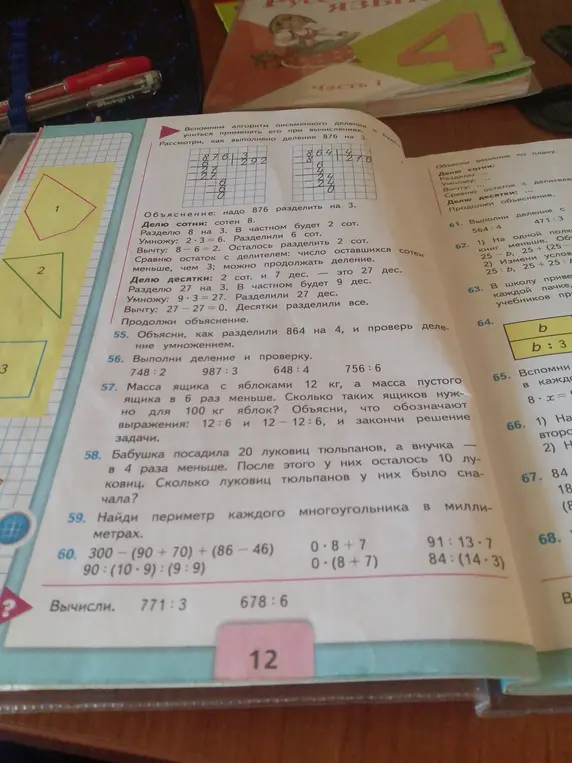 Русск
языка
4
Часть 1
Вспомним алгоритм письменного деления и
учиться применять его при вычислениях.
Рассмотри, как выполнено деление 876 на 3.
876 3
6 292
27
27
6
6
0
864 4
8 216
6
4
24
24
0
Объяснение: надо 876 разделить на 3.
Делю сотни: сотен 8.
Разделю 8 на 3. В частном будет 2 сот.
Умножу: 2 · 3 = 6. Разделили 6 сот.
Вычту: 8 − 6 = 2. Осталось разделить 2 сот.
Сравню остаток с делителем: число оставшихся сотен
меньше, чем 3; можно продолжать деление.
Делю десятки: 2 сот. и 7 дес. — это 27 дес.
Разделю 27 на 3. В частном будет 9 дес.
Умножу: 9 · 3 = 27. Разделили 27 дес.
Вычту: 27 − 27 = 0. Десятки разделили все.
Продолжи объяснение.
55. Объясни, как разделили 864 на 4, и проверь деле-
ние умножением.
56. Выполни деление и проверку.
748 : 2 987 : 3 648 : 4 756 : 6
57. Масса ящика с яблоками 12 кг, а масса пустого
ящика в 6 раз меньше. Сколько таких ящиков нуж-
но для 100 кг яблок? Объясни, что обозначают
выражения: 12 : 6 и 12 − 12 : 6, и закончи решение
задачи.
58. Бабушка посадила 20 луковиц тюльпанов, а внучка —
в 4 раза меньше. После этого у них осталось 10 лу-
ковиц. Сколько луковиц тюльпанов у них было сна-
чала?
59. Найди периметр каждого многоугольника в милли-
метрах.
60. 300 − (90 + 70) + (86 − 46) 0 · 8 + 7 91 : 13 · 7
90 : (10 · 9) : (9 : 9) 0 · (8 + 7) 84 : (14 · 3)
? Вычисли. 771 : 3 678 : 6
12
1
2
3
Объясни решение по плану.
Делю сотни:
Разделю
Умножу:
Вычту: ...
Сравню остаток с делителе
Делю десятки: ...
Продолжи объяснение.
61. Выполни деление с
564 : 4 471 : 3
62. 1) На одной пол
книг меньше. Об
25 − b, 25 + (25 −
2) Измени услов
25 : b, 25 + 25 :
63. В школу приве
каждой пачке,
учебников пр
64. b
b : 3
65. Вспомни
в каждо
8 · x =
66. 1) На
второ
2) Н
67. 84
18
(8
68.
В